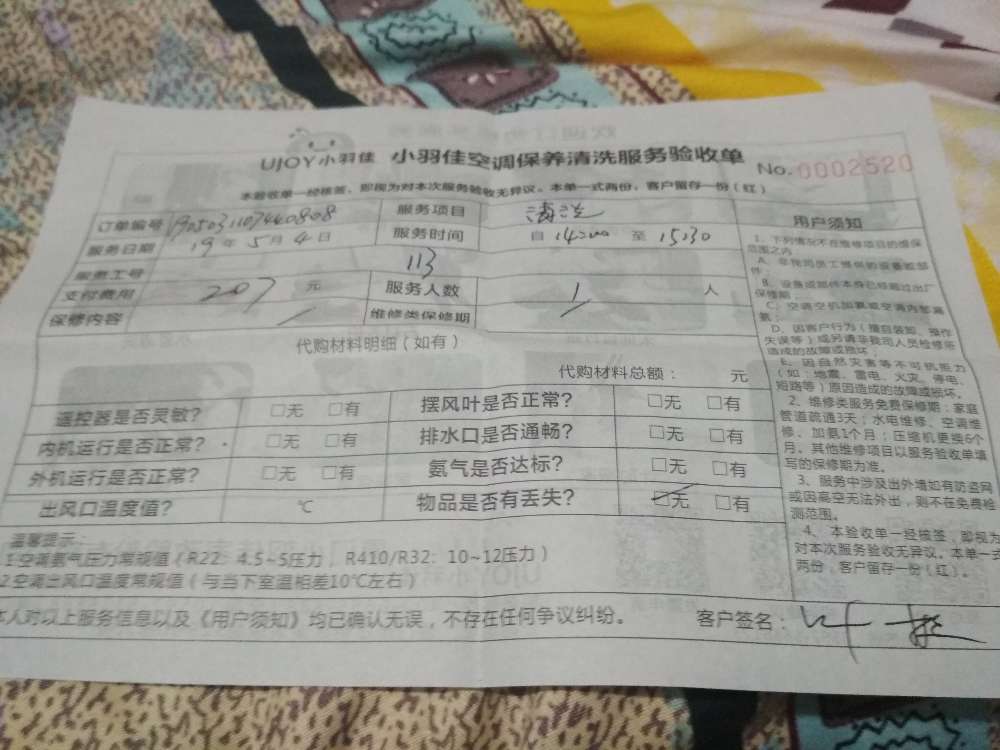 UJOY小羽佳 小羽佳空调保养清洗服务验收单 No.0002520
本验收单一经核签，即视为对本次服务验收无异议。本单一式两份，客户留存一份（红）
订单编号 1905031107440808 服务项目 清洗
服务日期 19年5月4日 服务时间 自 14:00 至 15:30
服务工号 113
支付费用 207 元 服务人数 1 人
保修内容 / 维修类保修期 /
代购材料明细（如有）
代购材料总额： 元
遥控器是否灵敏？ □无 □有 摆风叶是否正常？ □无 □有
内机运行是否正常？ □无 □有 排水口是否通畅？ □无 □有
外机运行是否正常？ □无 □有 氨气是否达标？ □无 □有
出风口温度值？ ℃ 物品是否有丢失？ □无 □有
温馨提示：
1.空调氨气压力常规值（R22：4.5~5压力，R410/R32：10~12压力）
2.空调出风口温度常规值（与当下室温相差10℃左右）
本人对以上服务信息以及《用户须知》均已确认无误，不存在任何争议纠纷。 客户签名：
用户须知
1、下列情况不在维修项目的维保
范围之内
A、非我司员工提供的设备或部
件；
B、设备或部件本身已经超过出厂
保修期；
C、空调空机加氨或空调内部漏
氨；
D、因客户行为（擅自装卸、操作
失误等）或另请非我司人员检修所
造成的故障或损坏；
E、因自然灾害等不可抗拒力
（如：地震、雷电、火灾、停电、
短路等）原因造成的故障或损坏。
2、维修类服务免费保修期：家庭
管道疏通3天；水电维修、空调维
修、加氨1个月；压缩机更换6个
月。其他维修项目以服务验收单填
写的保修期为准。
3、服务中涉及出外墙如有防盗网
或因高空无法外出，则不在免费检
测范围。
4、本验收单一经核签，即视为
对本次服务验收无异议。本单一式
两份，客户留存一份（红）。